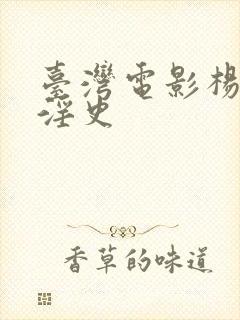 臺灣電影楊
淫史
香草的味道